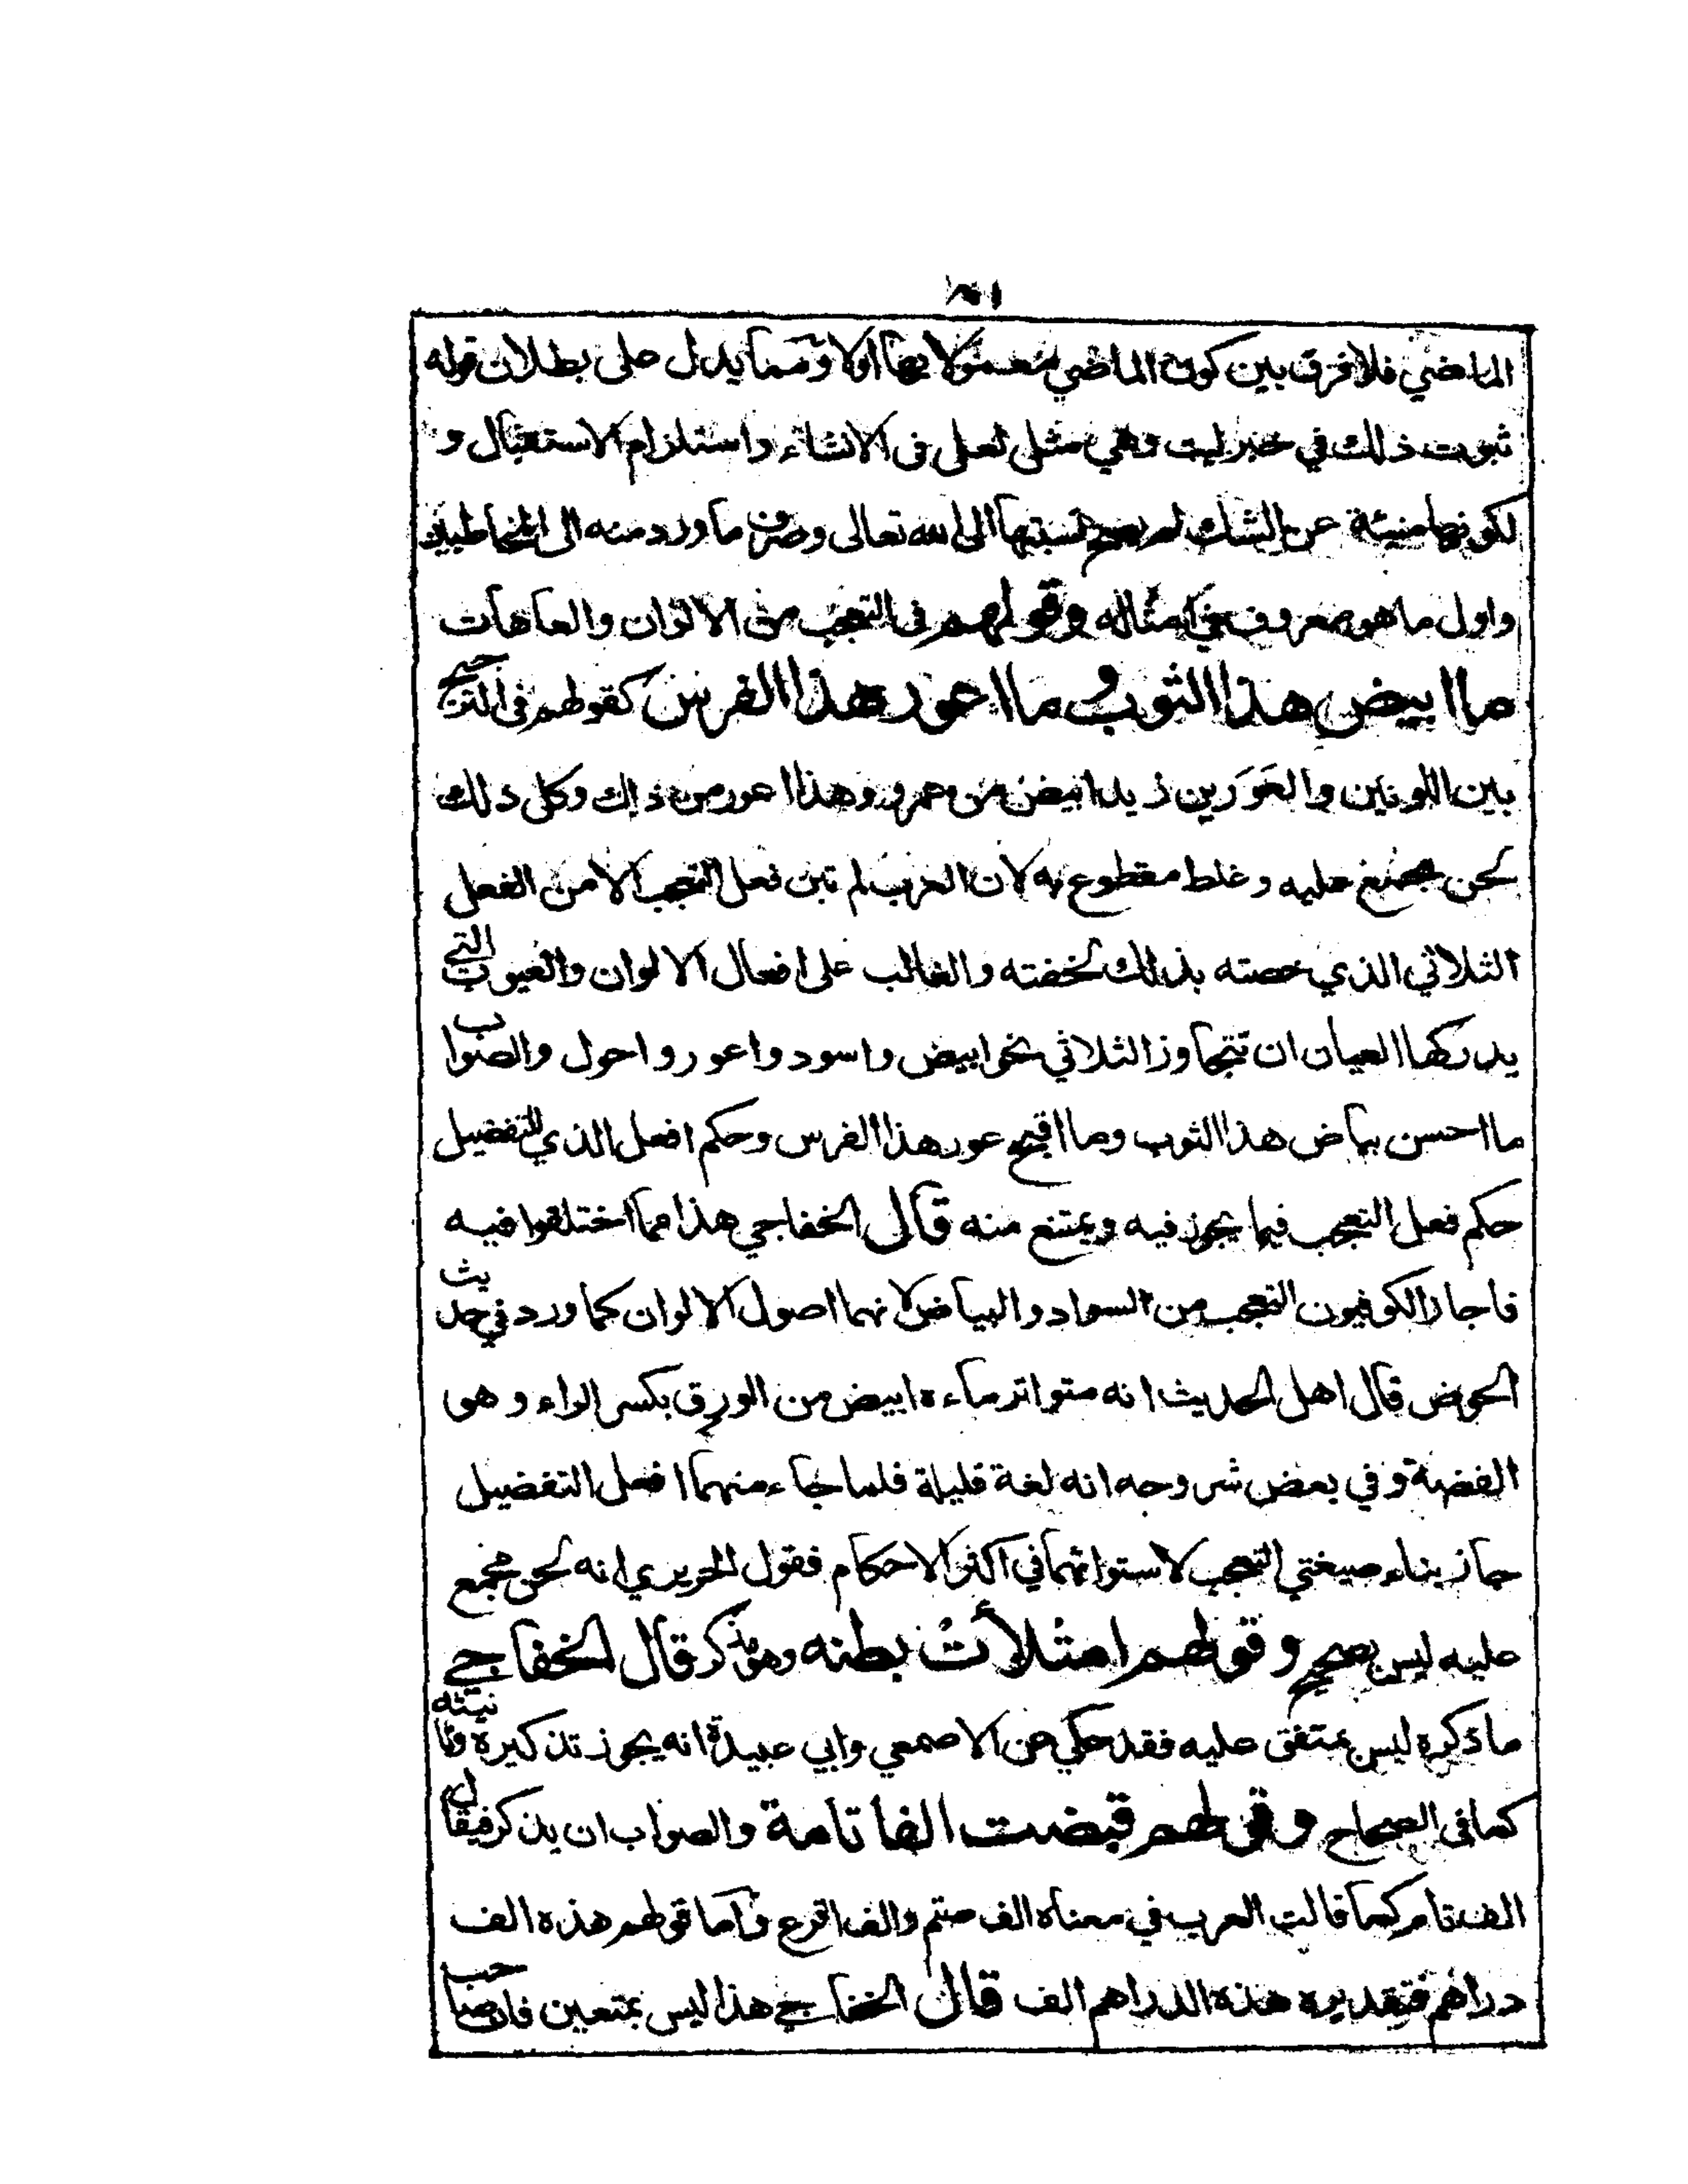 الماضي فلا فرق بين كون الماضي معمولا بها اولا ومما يدل على بطلان قوله
ثبوت ذلك في خبر ليت وهي مثل لعل فى الانشاء واستلزام الاستقبال و
لكونها منبئة عن الشك لم يصح نسبتها الى الله تعالى وصرف ما ورد منه الى المخاطبين
واول ما هو معروف في امثاله وقولهم فى التعجب من الالوان والعاهات
ما ابيض هذا الثوب و ما اعور هذا الفرس كقولهم فى الترجيح
بين اللونين والعَوَرين زيد ابيض من عمرو وهذا اعور من ذاك وكل ذلك
لحن مجمع عليه وغلط مقطوع به لان العرب لم تبن فعل التعجب الا من الفعل
الثلاثي الذي خصته بذلك لخفته والغالب على افعال الالوان والعيوب التي
يدركها العيان ان تتجاوز الثلاثي نحو ابيض واسود واعور واحول والصواب
ما احسن بياض هذا الثوب وما اقبح عور هذا الفرس وحكم افعل الذي للتفضيل
حكم فعل التعجب فيما يجوز فيه ويمتنع منه قال الخفاجي هذا مما اختلفوا فيه
فاجاز الكوفيون التعجب من السواد والبياض لانهما اصول الالوان كما ورد في حديث
الحوض قال اهل الحديث انه متواتر ماءه ابيض من الورق بكسر الراء وهو
الفضة وفي بعض شروحه انه لغة قليلة فلما جاء منهما افعل التفضيل
جاز بناء صيغتي التعجب لاستوائهما في اكثر الاحكام فقول الحريري انه لحن مجمع
عليه ليس بصحيح وقولهم امتلأتْ بطنه وهو مذكر قال الخفاجي
ما ذكره ليس بمتفق عليه فقد حكي عن الاصمعي وابي عبيدة انه يجوز تذكيره وتانيثه
كما فى الصحاح وقولهم قبضت الفا تامة والصواب ان يذكر فيقال
الف تام كما قالت العرب في معناه الف صتم والف اقرع واما قولهم هذه الف
دراهم فتقديره هذه الدراهم الف قال الخفاجي هذا ليس بمتعين فان صاحب